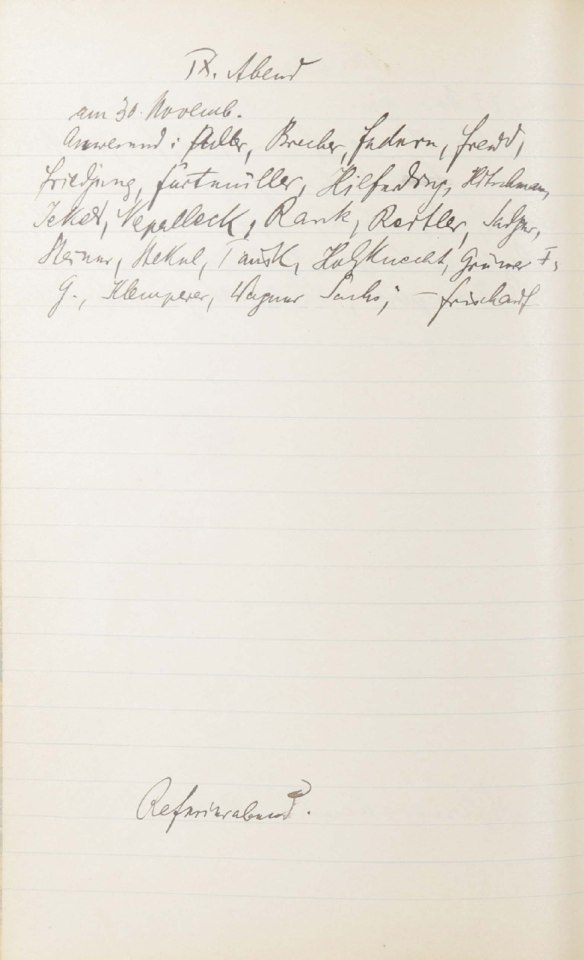 IX. Abend
am 30. Novemb.
Anwesend: Adler, Brecher, Federn, Freud,
Friedjung, Furtmüller, Hilferding, Hitschmann,
Jekels, Oppelleck, Rank, Reitler, Sadger,
Steiner, Stekel, Tausk, Holzknecht, Grüner F.,
G., Klemperer, Wagner Sachs, – Frischauf
Referierabend.